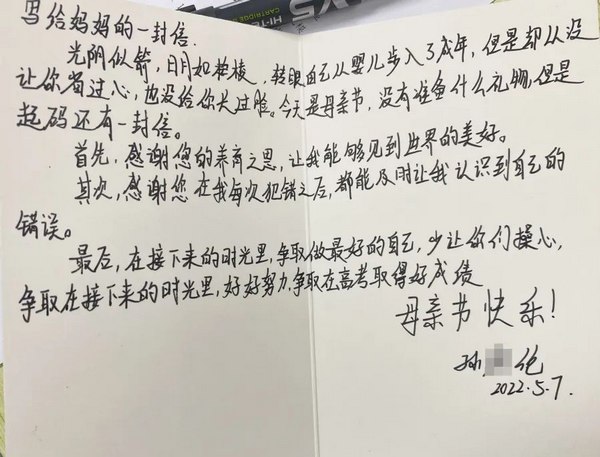 HI-TE
CARTRIDGE
V5
写给妈妈的一封信.
光阴似箭,日月如梭梭,转眼自己从婴儿步入了成年,但是却从没
让你省过心,也没给你长过脸。今天是母亲节,没有准备什么礼物,但是
起码还有一封信。
首先,感谢您的养育之恩,让我能够见到世界的美好。
其次,感谢您在我每次犯错之后,都能及时让我认识到自己的
错误。
最后,在接下来的时光里,争取做最好的自己,少让你们操心,
争取在接下来的时光里,好好努力,争取在高考取得好成绩
母亲节快乐!
孙 伦
2022.5.7.